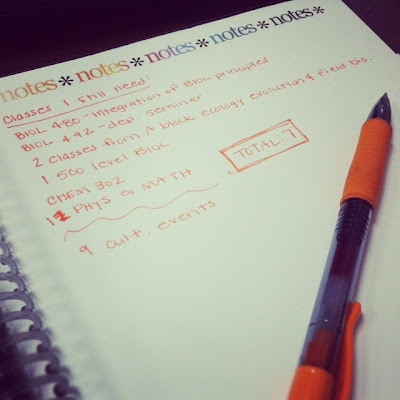 notes*notes*notes*notes*notes*
Classes I still need:
BIOL 480 - Integration of BIOL principles
BIOL 492 - dep. seminar
2 classes from A block ecology evolution & field bio.
1 500 level BIOL
CHEM 302
1 PHYS or MATH
TOTAL: 7
9 cult. events